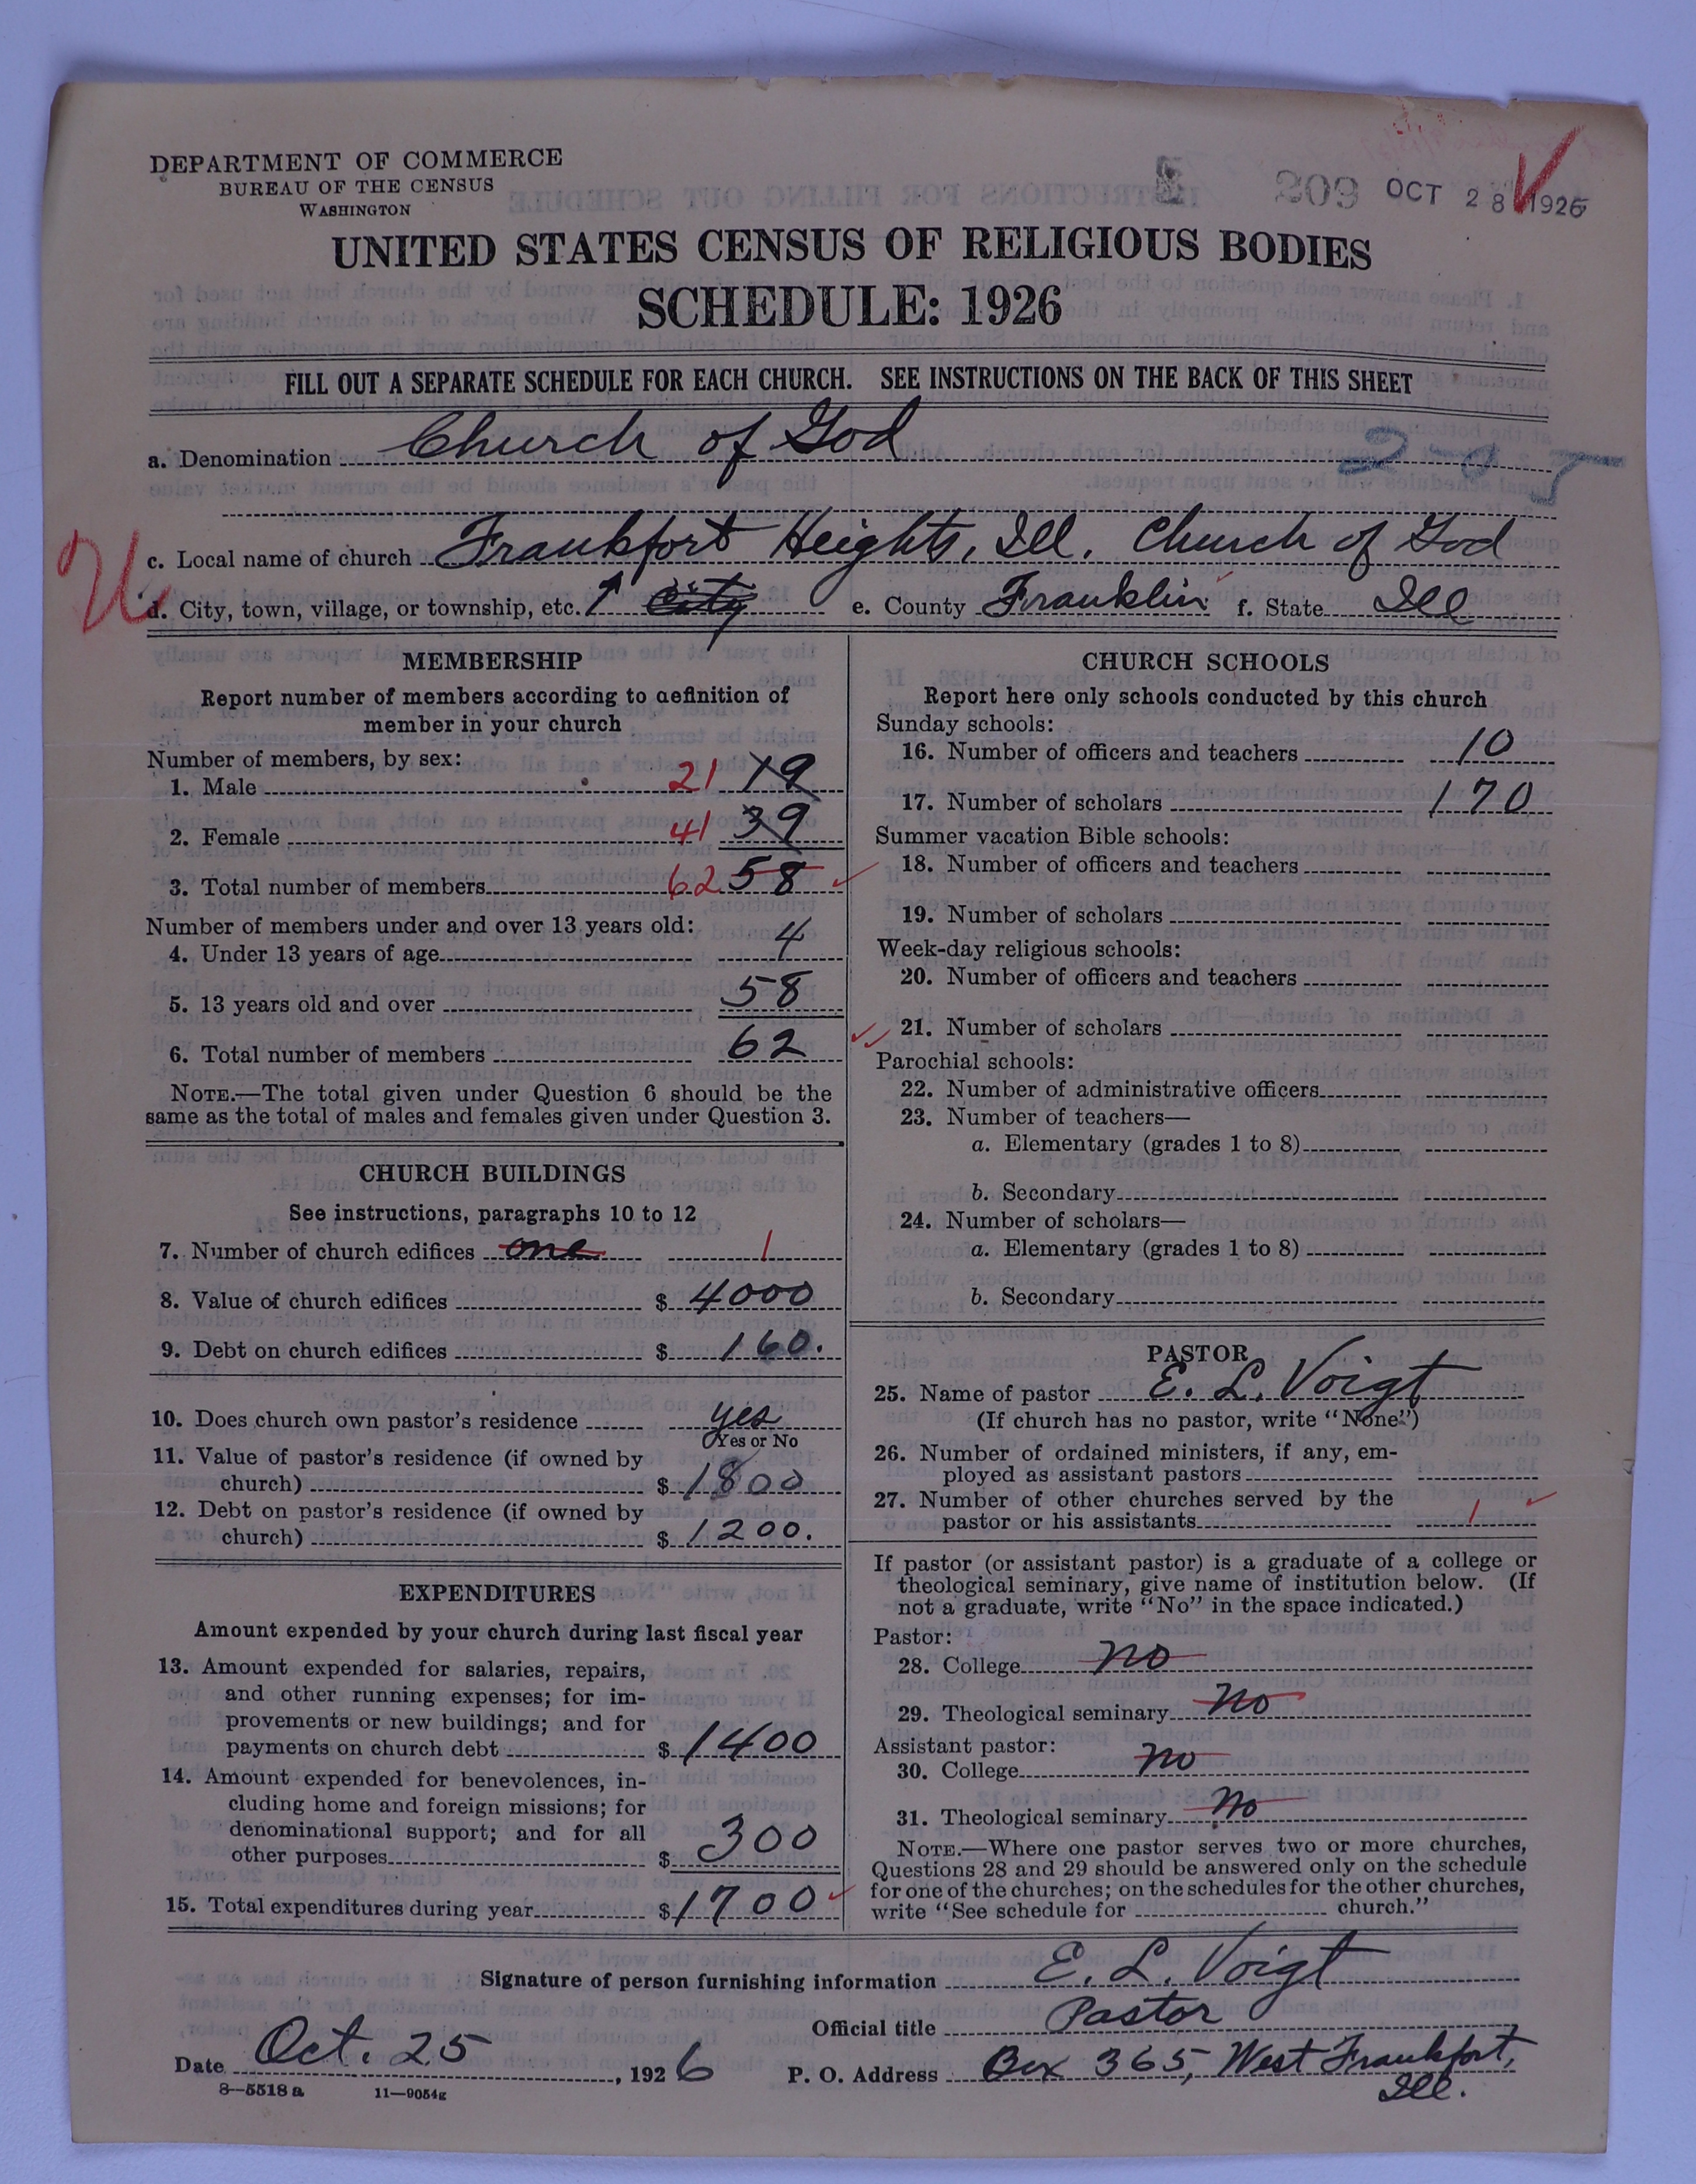 DEPARTMENT OF COMMERCE
BUREAU OF THE CENSUS
WASHINGTON
209 OCT 28 1926
UNITED STATES CENSUS OF RELIGIOUS BODIES
SCHEDULE: 1926
FILL OUT A SEPARATE SCHEDULE FOR EACH CHURCH. SEE INSTRUCTIONS ON THE BACK OF THIS SHEET
a. Denomination Church of God 2-0 5
c. Local name of church Frankfort Heights, Ill. Church of God
U
d. City, town, village, or township, etc. City e. County Franklin f. State Ill
MEMBERSHIP
Report number of members according to definition of
member in your church
Number of members, by sex:
1. Male 21 19
2. Female 41 39
3. Total number of members 62 58
Number of members under and over 13 years old:
4. Under 13 years of age 4
5. 13 years old and over 58
6. Total number of members 62
NOTE.—The total given under Question 6 should be the
same as the total of males and females given under Question 3.
CHURCH BUILDINGS
See instructions, paragraphs 10 to 12
7. Number of church edifices one 1
8. Value of church edifices $ 4000
9. Debt on church edifices $ 160.
10. Does church own pastor's residence yes
Yes or No
11. Value of pastor's residence (if owned by
church) $ 1800
12. Debt on pastor's residence (if owned by
church) $ 1200.
EXPENDITURES
Amount expended by your church during last fiscal year
13. Amount expended for salaries, repairs,
and other running expenses; for im-
provements or new buildings; and for
payments on church debt $ 1400
14. Amount expended for benevolences, in-
cluding home and foreign missions; for
denominational support; and for all
other purposes $ 300
15. Total expenditures during year $ 1700
CHURCH SCHOOLS
Report here only schools conducted by this church
Sunday schools:
16. Number of officers and teachers 10
17. Number of scholars 170
Summer vacation Bible schools:
18. Number of officers and teachers
19. Number of scholars
Week-day religious schools:
20. Number of officers and teachers
21. Number of scholars
Parochial schools:
22. Number of administrative officers
23. Number of teachers—
a. Elementary (grades 1 to 8)
b. Secondary
24. Number of scholars—
a. Elementary (grades 1 to 8)
b. Secondary
PASTOR
25. Name of pastor E. L. Voigt
(If church has no pastor, write "None")
26. Number of ordained ministers, if any, em-
ployed as assistant pastors
27. Number of other churches served by the
pastor or his assistants 1
If pastor (or assistant pastor) is a graduate of a college or
theological seminary, give name of institution below. (If
not a graduate, write "No" in the space indicated.)
Pastor:
28. College no
29. Theological seminary No
Assistant pastor:
30. College no
31. Theological seminary No
NOTE.—Where one pastor serves two or more churches,
Questions 28 and 29 should be answered only on the schedule
for one of the churches; on the schedules for the other churches,
write "See schedule for church."
Signature of person furnishing information E. L. Voigt
Official title Pastor
Date Oct. 25, 1926 P. O. Address Box 365, West Frankfort,
Ill.
8—5518a 11—9054g